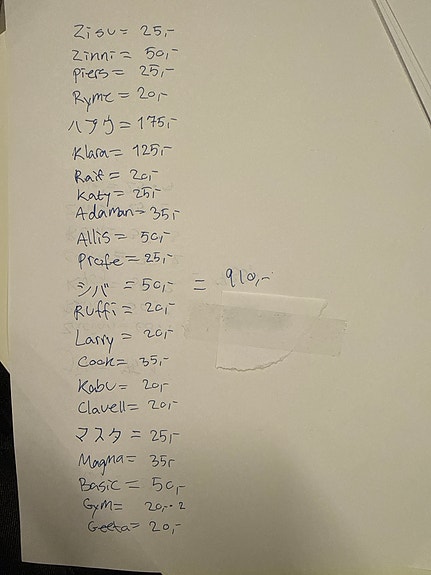 Zisu = 25,-
Zinni = 50,-
Piers = 25,-
Ryme = 20,-
ハプウ = 175,-
Klara = 125,-
Raif = 20,-
Katy = 25,-
Adaman = 35,-
Allis = 50,-
Profe = 25,-
シバ = 50,- = 910,-
Ruffi = 20,-
Larry = 20,-
Cook = 35,-
Kabu = 20,-
Clavell = 20,-
マスタ = 25,-
Magma = 35,-
Basic = 50,-
Gym = 20,-· 2
Geeta = 20,-